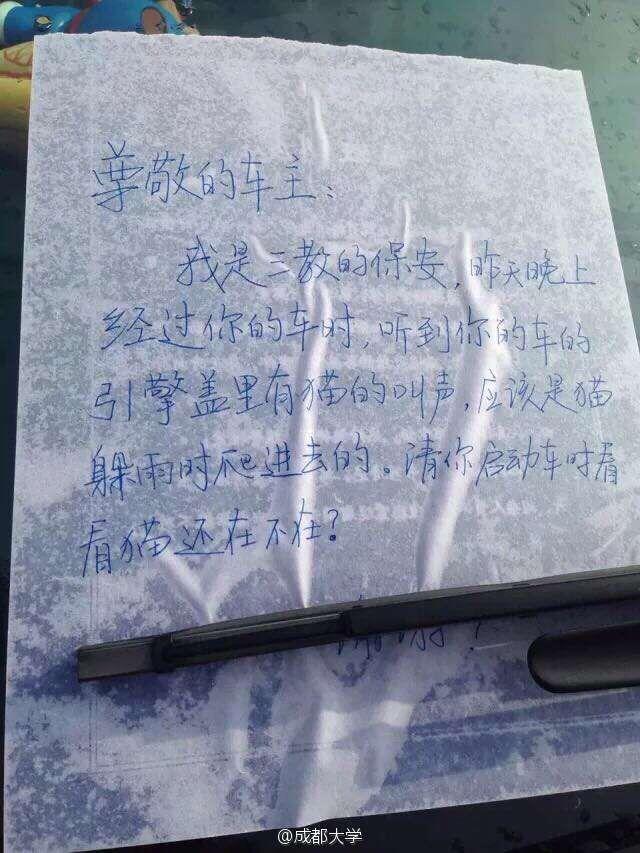 尊敬的车主：
我是三教的保安，昨天晚上
经过你的车时，听到你的车的
引擎盖里有猫的叫声，应该是猫
躲雨时爬进去的。请你启动车时看
看猫还在不在？
谢谢！
@成都大学